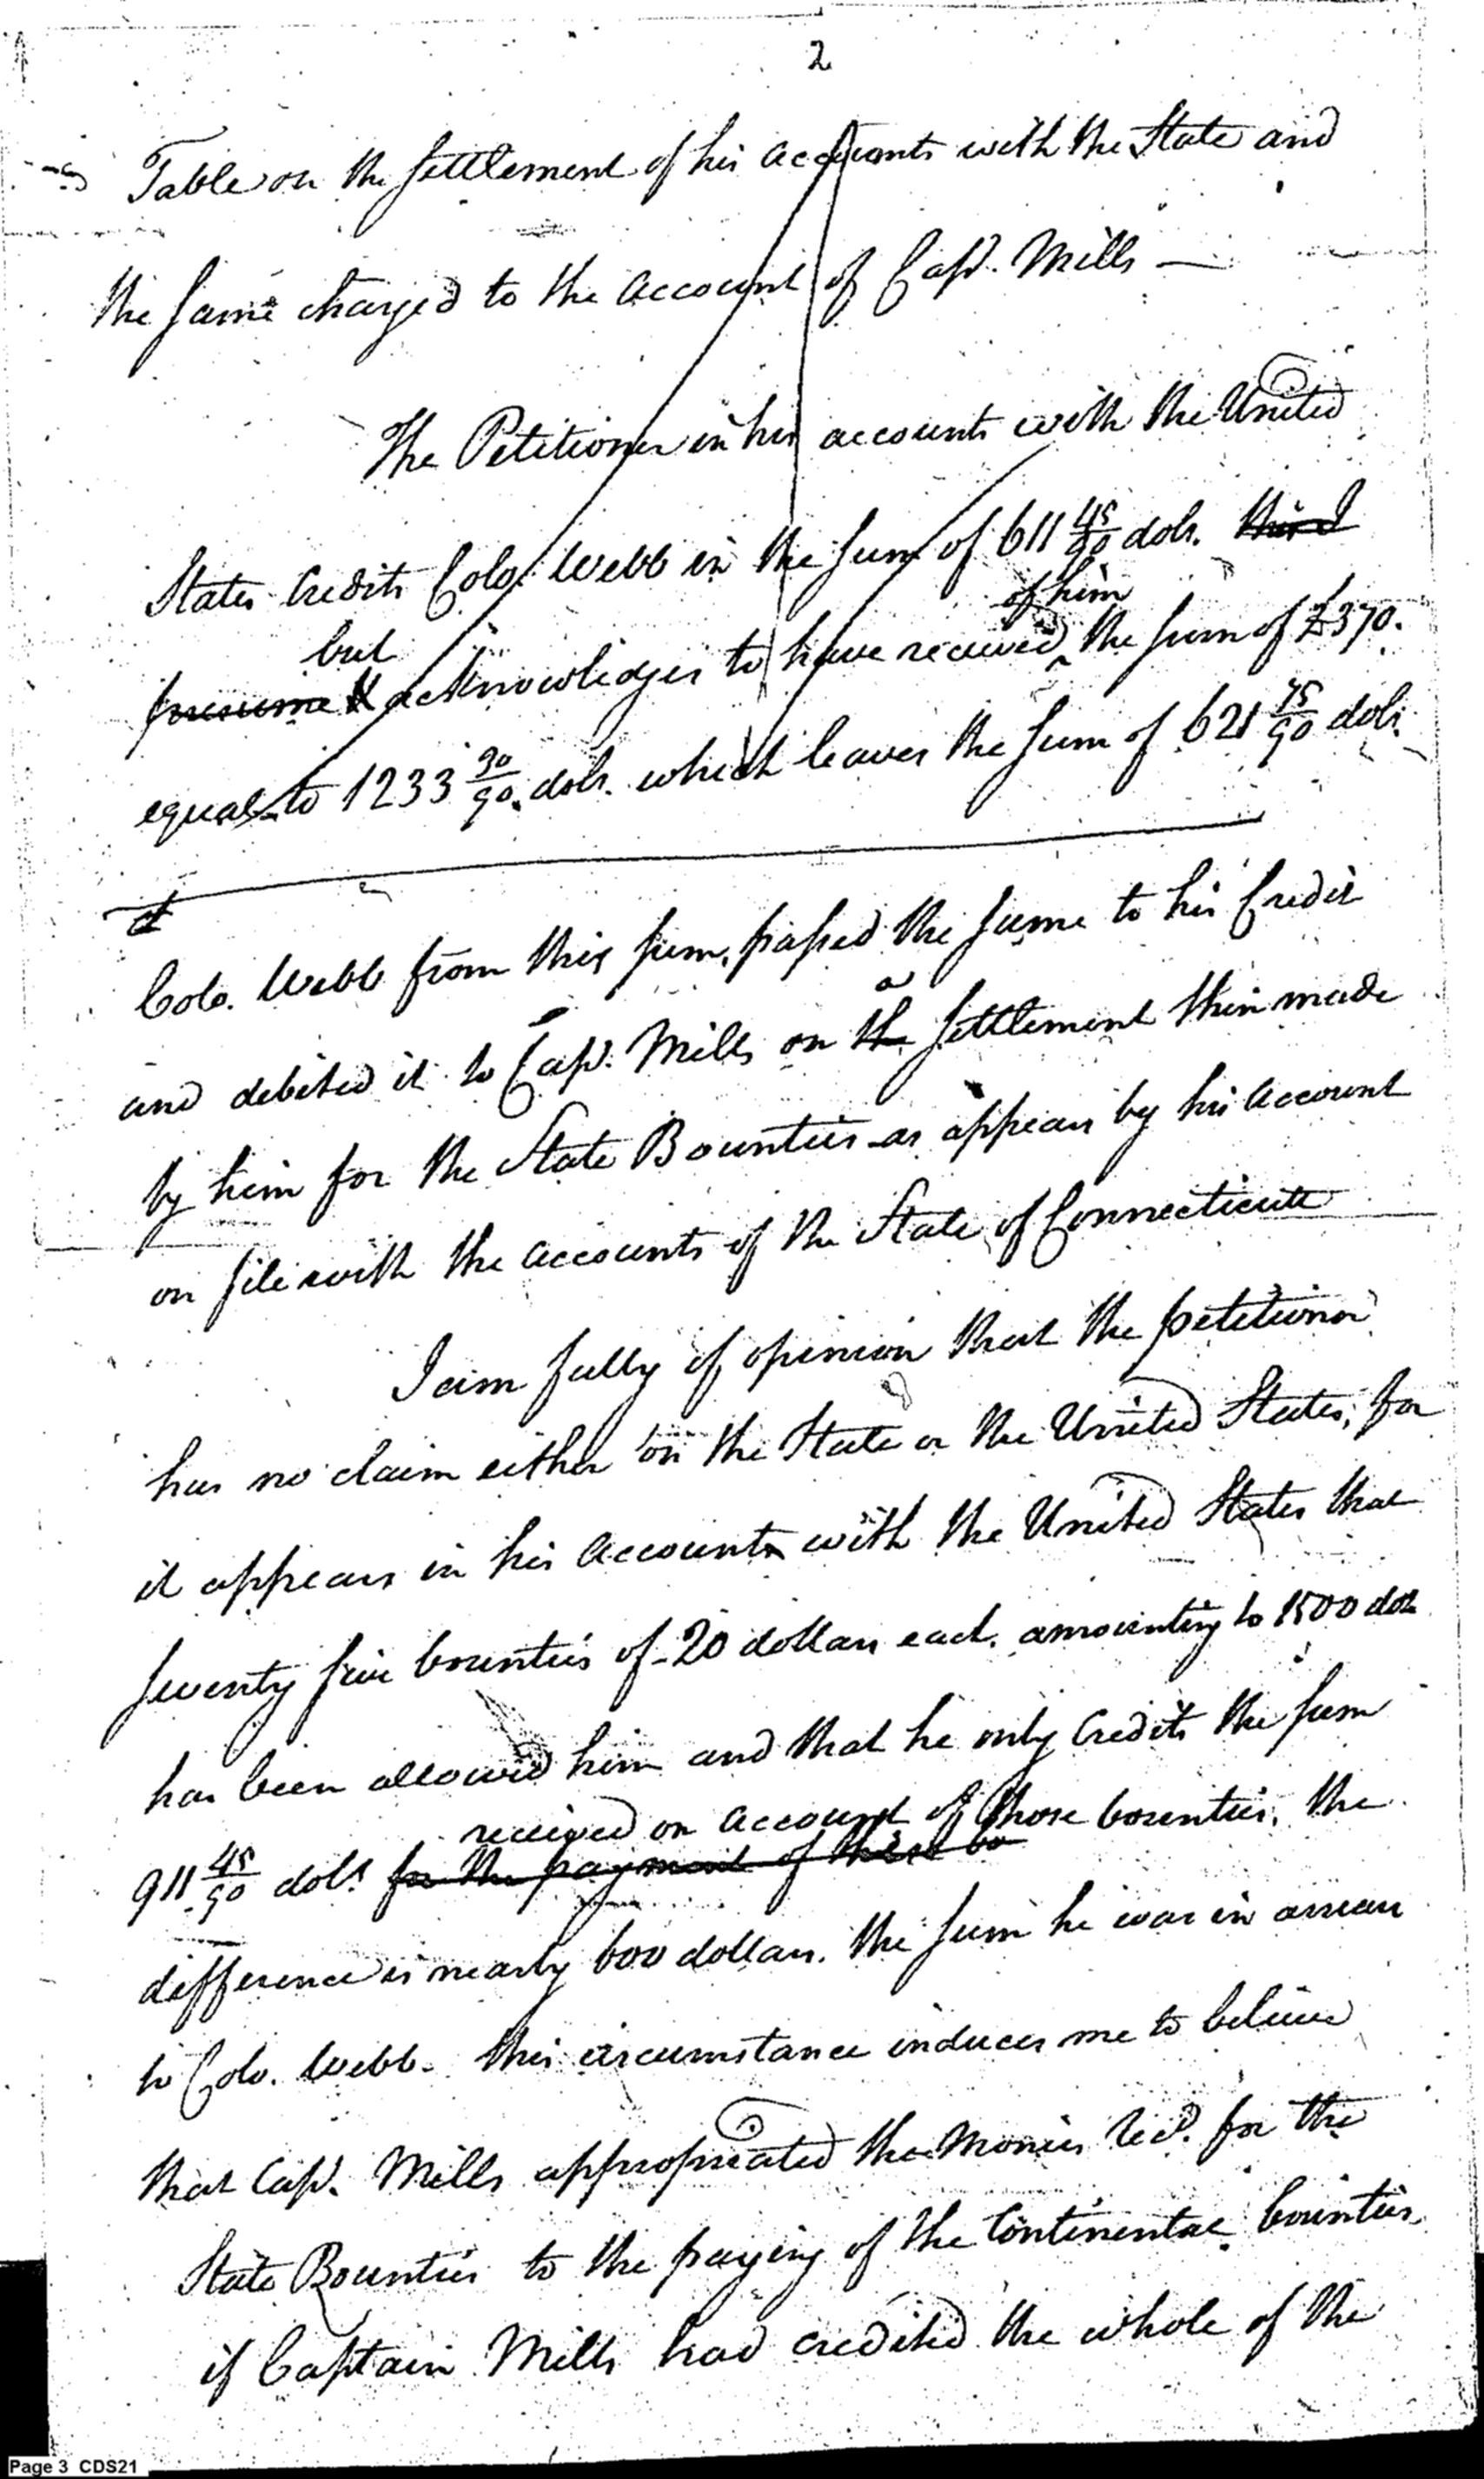 2
Table on the settlement of his accounts with the State and
the same charged to the account of Capt. Mills —
The Petitioner in his accounts with the United
States credits Colo. Webb in the sum of 611 45/90 dols. this I
of him
but
presume & acknowledges to have received the sum of £370.
equal to 1233 30/90 dols. which leaves the sum of 621 75/90 dols.
Colo. Webb from this sum, passed the same to his Credit
a
and debited it to Capt. Mills on the settlement then made
by him for the State Bounties as appears by his account
on file with the accounts of the State of Connecticutt
I am fully of opinion that the petitioner
has no claim either on the State or the United States, for
it appears in his accounts with the United States that
seventy five bounties of 20 dollars each. amounting to 1500 dols
has been allowed him and that he only credits the sum
received on account of those bounties. the
911 45/90 dols for the payment of these bo
difference is nearly 600 dollars. the sum he was in arrear
to Colo. Webb. this circumstance induces me to believe
that Capt. Mills appropriated the monies recd. for the
State Bounties to the paying of the Continental bounties,
if Captain Mills had credited the whole of the
Page 3 CDS21